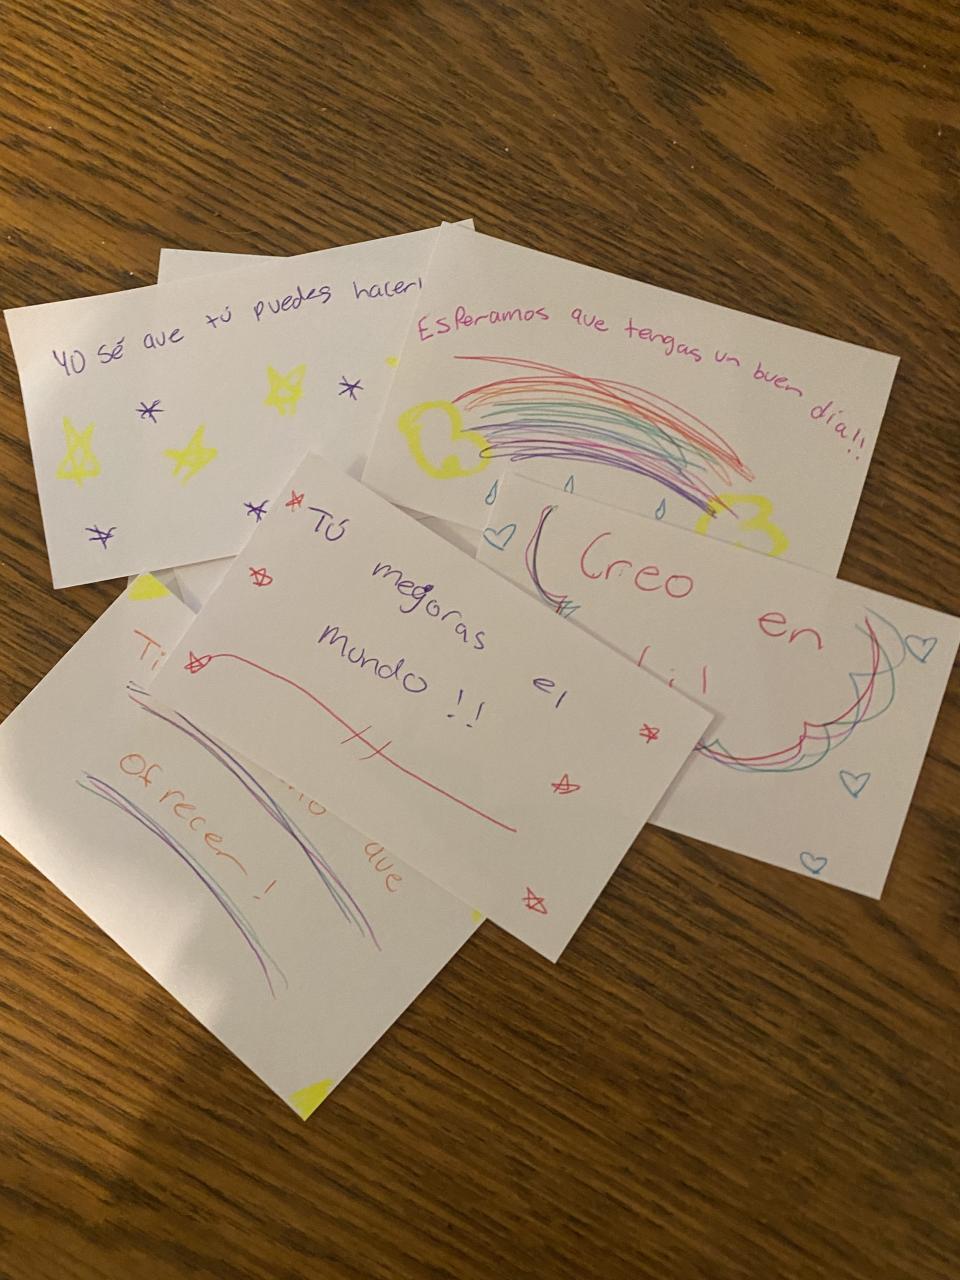 Yo sé que tú puedes hacerl
Esperamos que tengas un buen día!!
Creo en
Tú
megoras el
mundo!!
Ti
que
ofrecer!